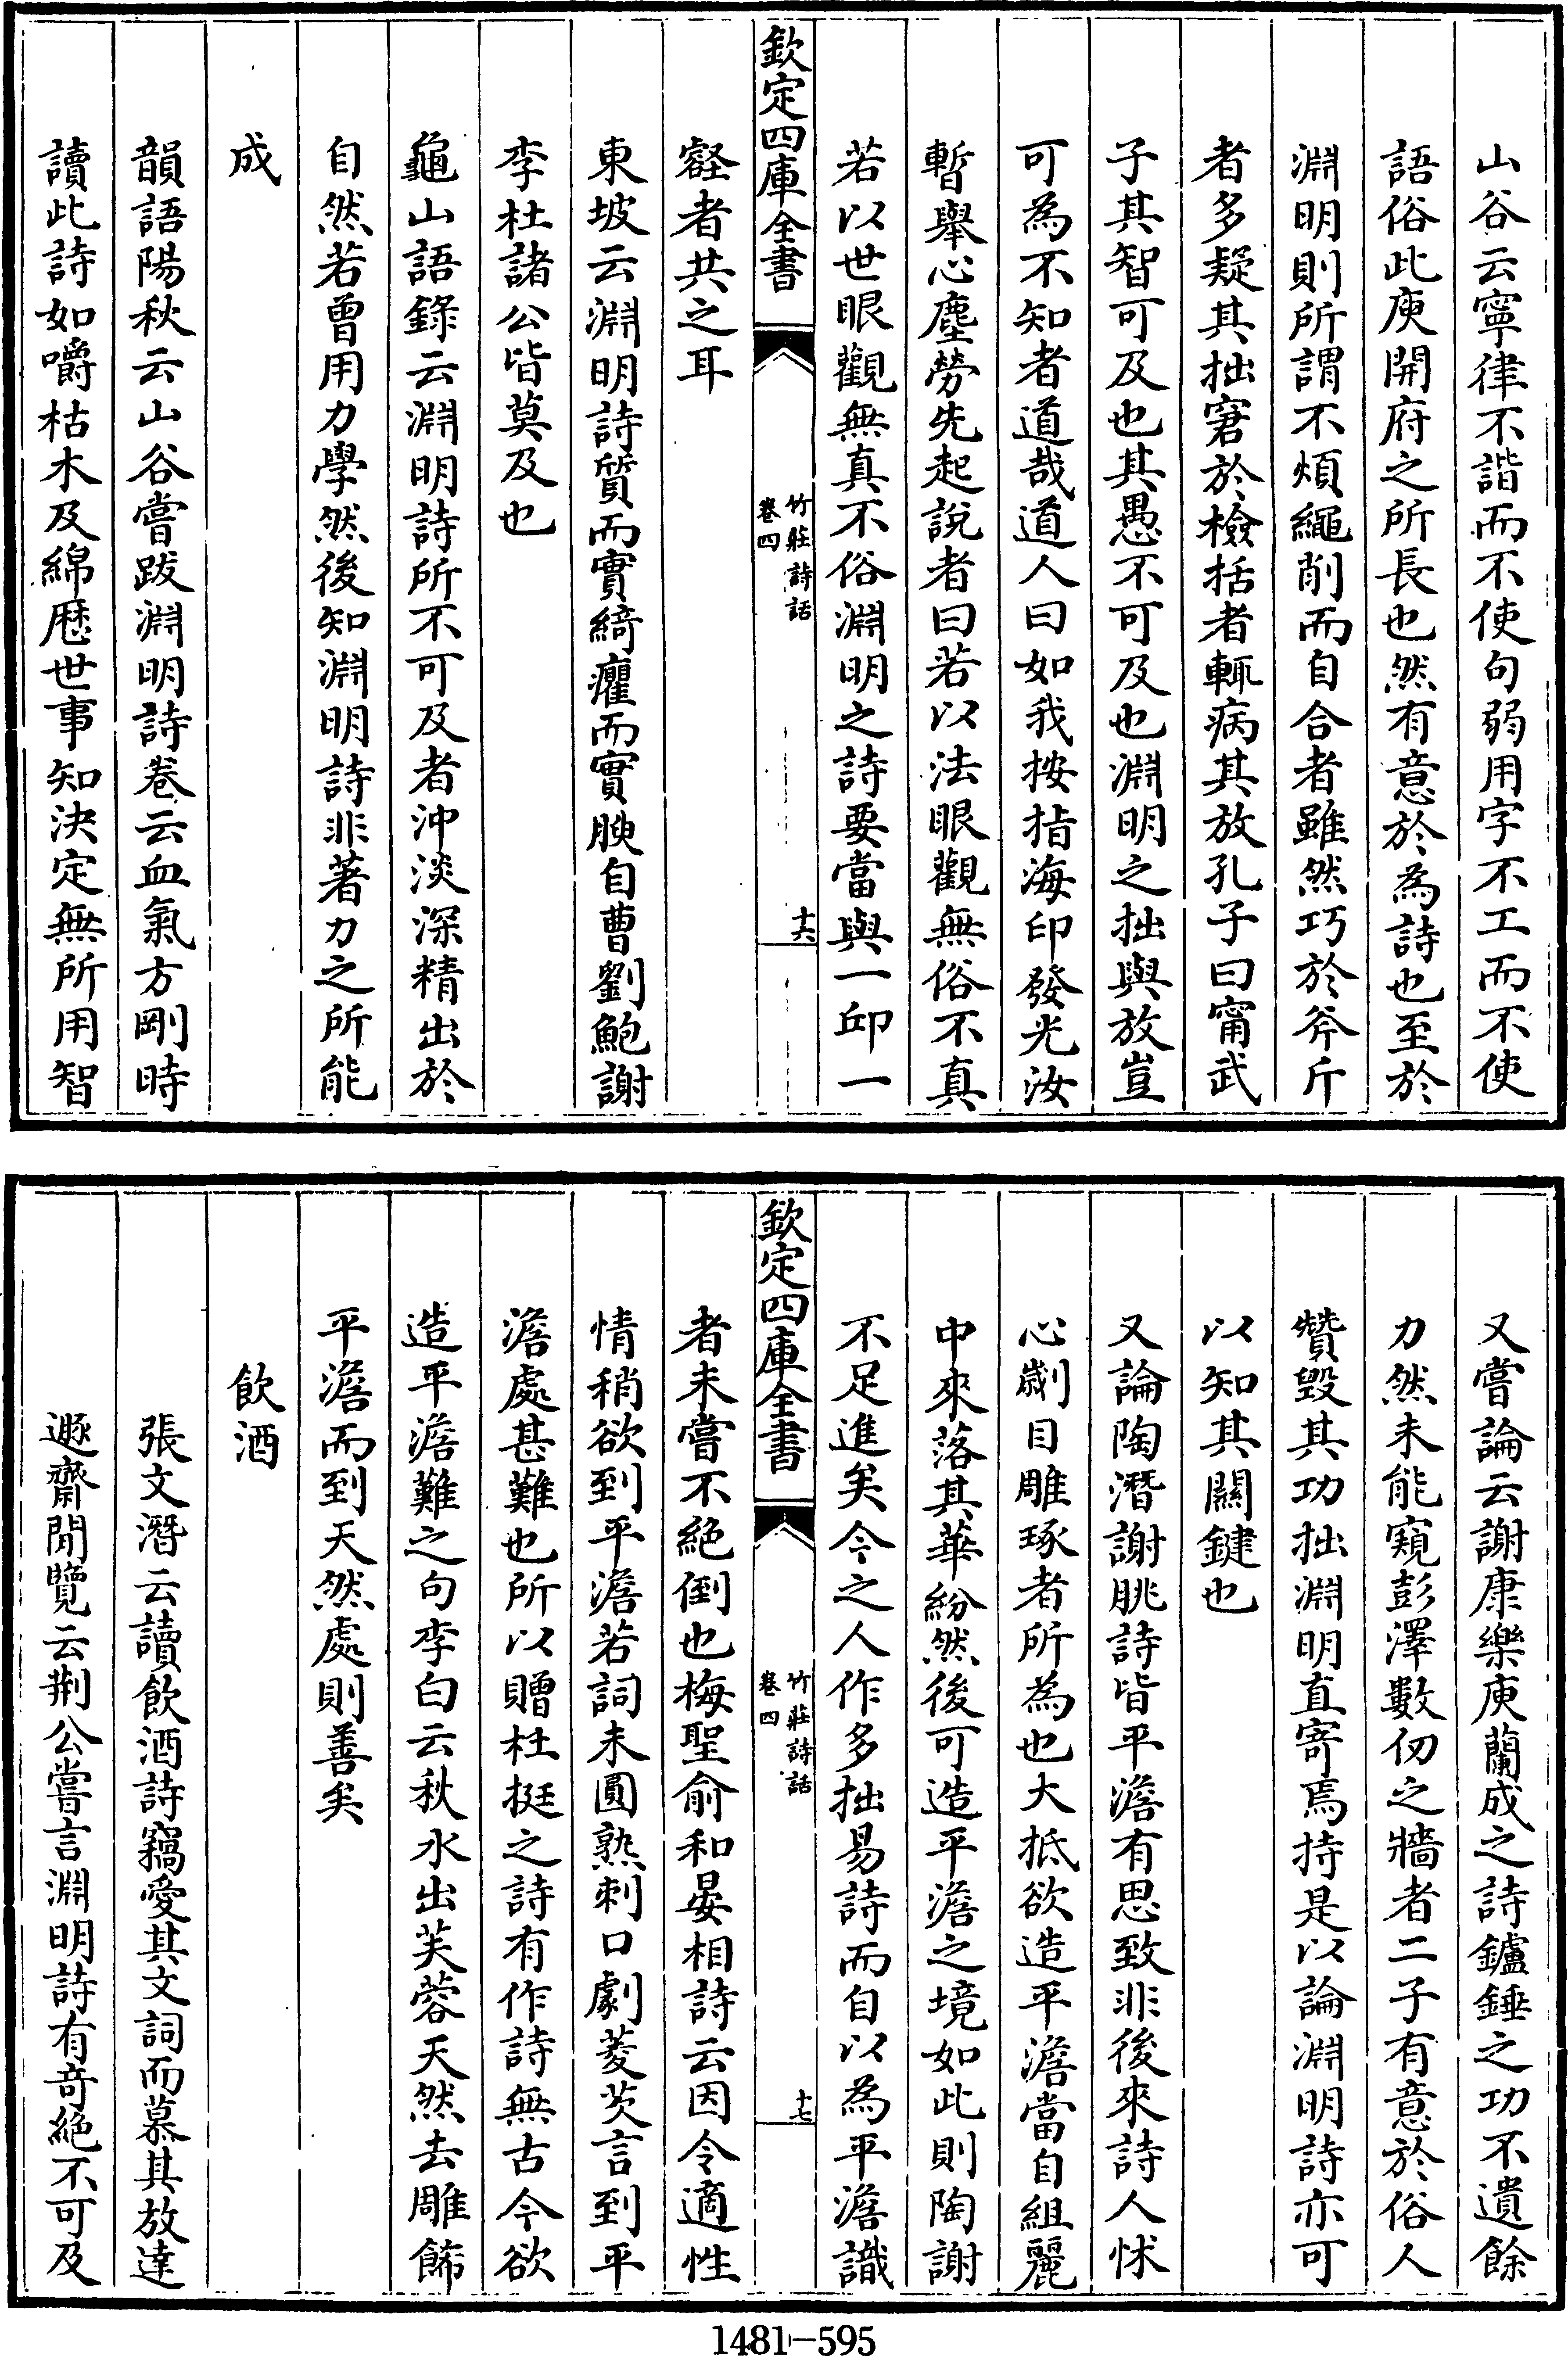 山谷云寧律不諧而不使句弱用字不工而不使
語俗此庾開府之所長也然有意於為詩也至於
淵明則所謂不煩繩削而自合者雖然巧於斧斤
者多疑其拙窘於檢括者輒病其放孔子曰甯武
子其智可及也其愚不可及也淵明之拙與放豈
可為不知者道哉道人曰如我按指海印發光汝
暫舉心塵勞先起說者曰若以法眼觀無俗不真
若以世眼觀無真不俗淵明之詩要當與一邱一
欽定四庫全書
竹莊詩話
卷四
十六
壑者共之耳
東坡云淵明詩質而實綺癯而實腴自曹劉鮑謝
李杜諸公皆莫及也
龜山語錄云淵明詩所不可及者沖淡深精出於
自然若曾用力學然後知淵明詩非著力之所能
成
韻語陽秋云山谷嘗跋淵明詩卷云血氣方剛時
讀此詩如嚼枯木及綿歷世事知決定無所用智
又嘗論云謝康樂庾蘭成之詩鑪錘之功不遺餘
力然未能窺彭澤數仞之牆者二子有意於俗人
贊毀其功拙淵明直寄焉持是以論淵明詩亦可
以知其關鍵也
又論陶潛謝脁詩皆平澹有思致非後來詩人怵
心劌目雕琢者所為也大抵欲造平澹當自組麗
中來落其華紛然後可造平澹之境如此則陶謝
不足進矣今之人作多拙易詩而自以為平澹識
欽定四庫全書
竹莊詩話
卷四
十七
者未嘗不絕倒也梅聖俞和晏相詩云因令適性
情稍欲到平澹若詞未圓熟刺口劇菱芡言到平
澹處甚難也所以贈杜挺之詩有作詩無古今欲
造平澹難之句李白云秋水出芙蓉天然去雕飾
平澹而到天然處則善矣
飲酒
張文潛云讀飲酒詩竊愛其文詞而慕其放達
遯齋閒覽云荆公嘗言淵明詩有奇絕不可及
1481-595